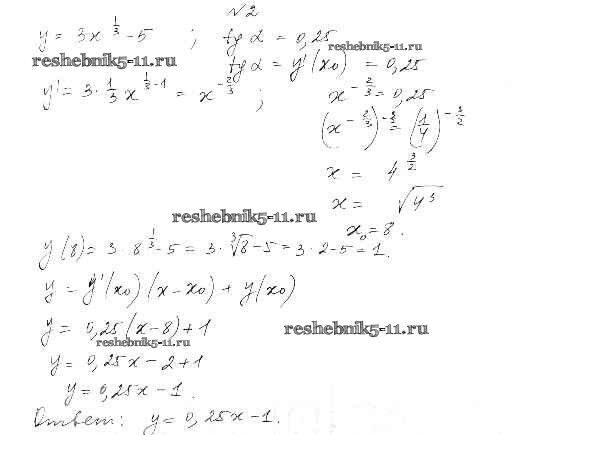 №2
y = 3x^{1/3} - 5 ; tg α = 0,25
reshebnik5-11.ru
reshebnik5-11.ru
tg α = y'(x₀) = 0,25
y' = 3 · 1/3 x^{1/3 - 1} = x^{-2/3} ; x^{-2/3} = 0,25
(x^{-2/3})^{-3/2} = (1/4)^{-3/2}
x = 4^{3/2}
x = √4³
reshebnik5-11.ru
x₀ = 8.
y(8) = 3 · 8^{1/3} - 5 = 3 · ∛8 - 5 = 3 · 2 - 5 = 1.
y = y'(x₀)(x - x₀) + y(x₀)
y = 0,25(x - 8) + 1
reshebnik5-11.ru
reshebnik5-11.ru
y = 0,25x - 2 + 1
y = 0,25x - 1.
Ответ: y = 0,25x - 1.